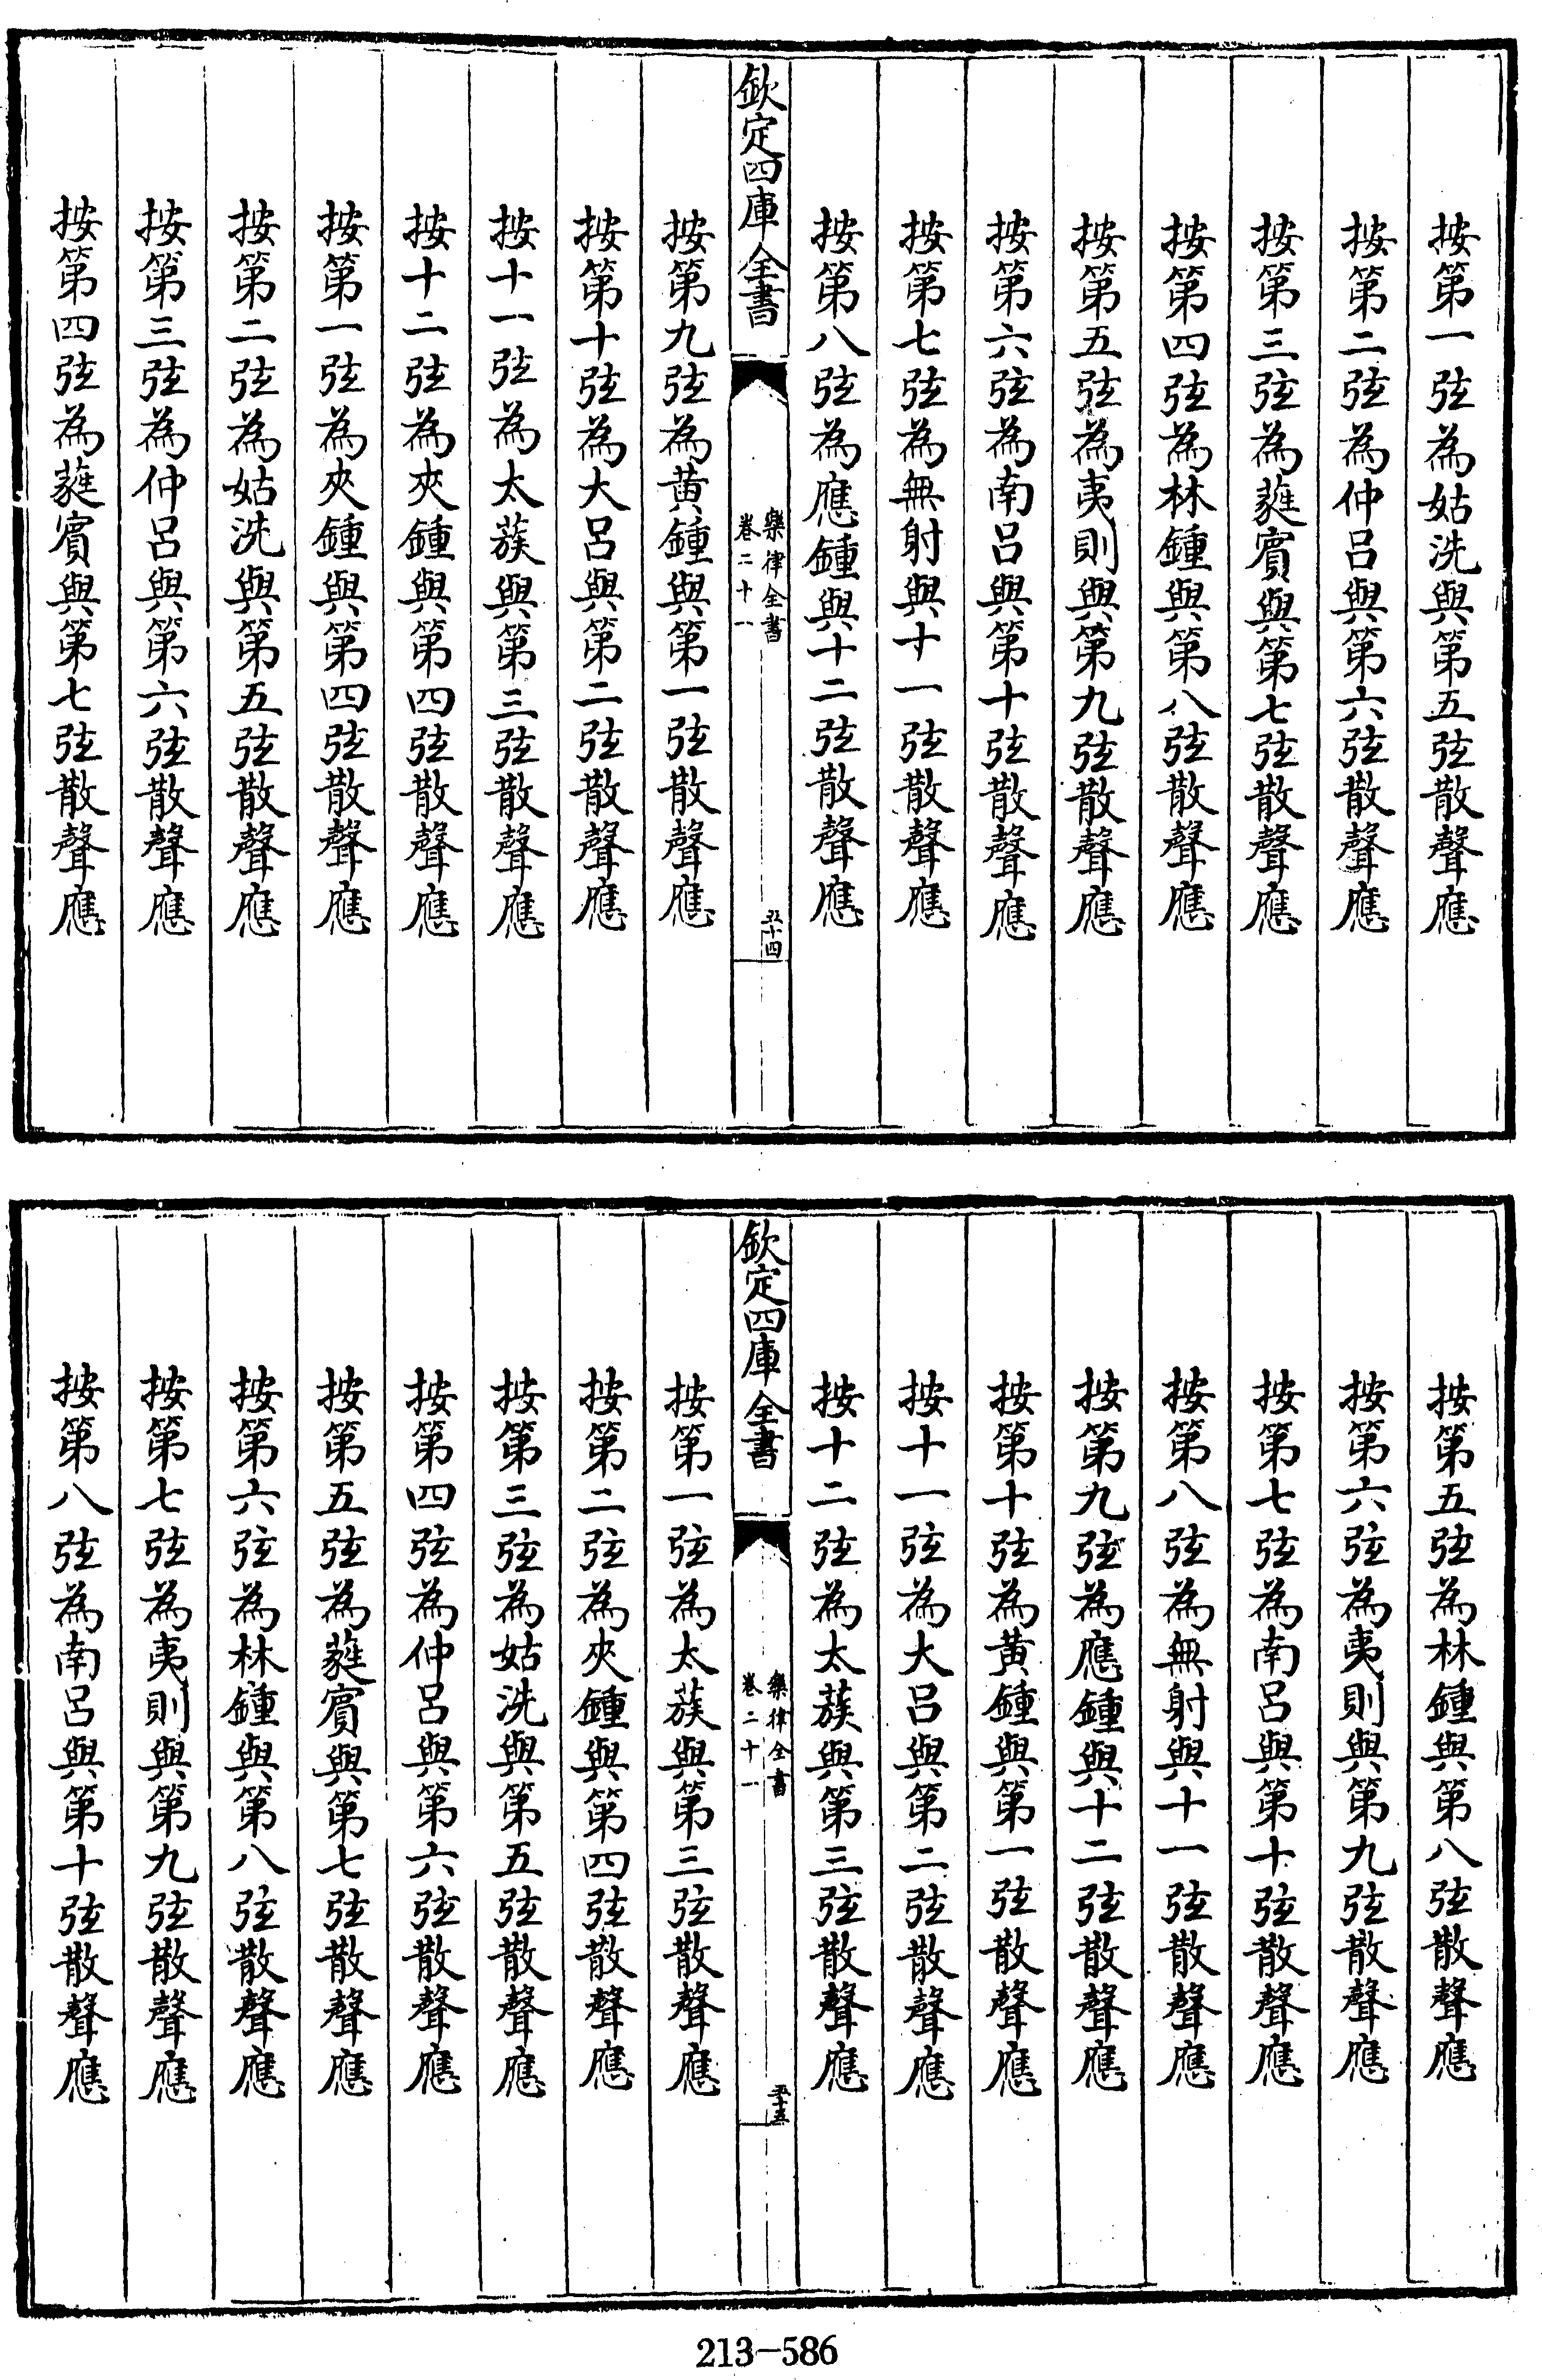 按第一弦為姑洗與第五弦散聲應
按第二弦為仲呂與第六弦散聲應
按第三弦為蕤賓與第七弦散聲應
按第四弦為林鍾與第八弦散聲應
按第五弦為夷則與第九弦散聲應
按第六弦為南呂與第十弦散聲應
按第七弦為無射與十一弦散聲應
按第八弦為應鍾與十二弦散聲應
欽定四庫全書
樂律全書
卷二十一
五十四
按第九弦為黃鍾與第一弦散聲應
按第十弦為大呂與第二弦散聲應
按十一弦為太蔟與第三弦散聲應
按十二弦為夾鍾與第四弦散聲應
按第一弦為夾鍾與第四弦散聲應
按第二弦為姑洗與第五弦散聲應
按第三弦為仲呂與第六弦散聲應
按第四弦為蕤賓與第七弦散聲應
按第五弦為林鍾與第八弦散聲應
按第六弦為夷則與第九弦散聲應
按第七弦為南呂與第十弦散聲應
按第八弦為無射與十一弦散聲應
按第九弦為應鍾與十二弦散聲應
按第十弦為黃鍾與第一弦散聲應
按十一弦為大呂與第二弦散聲應
按十二弦為太蔟與第三弦散聲應
欽定四庫全書
樂律全書
卷二十一
五十五
按第一弦為太蔟與第三弦散聲應
按第二弦為夾鍾與第四弦散聲應
按第三弦為姑洗與第五弦散聲應
按第四弦為仲呂與第六弦散聲應
按第五弦為蕤賓與第七弦散聲應
按第六弦為林鍾與第八弦散聲應
按第七弦為夷則與第九弦散聲應
按第八弦為南呂與第十弦散聲應
213-586